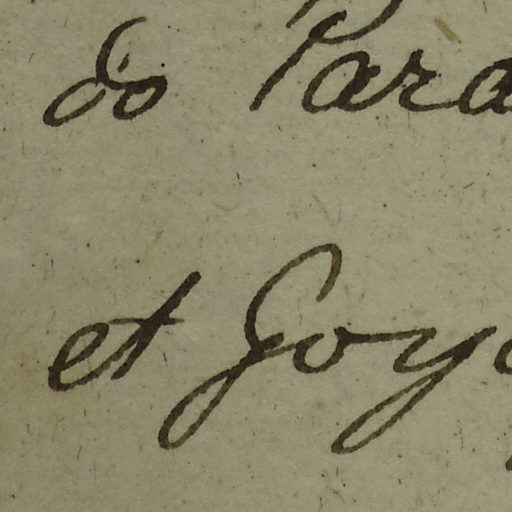 do Para
et Goy